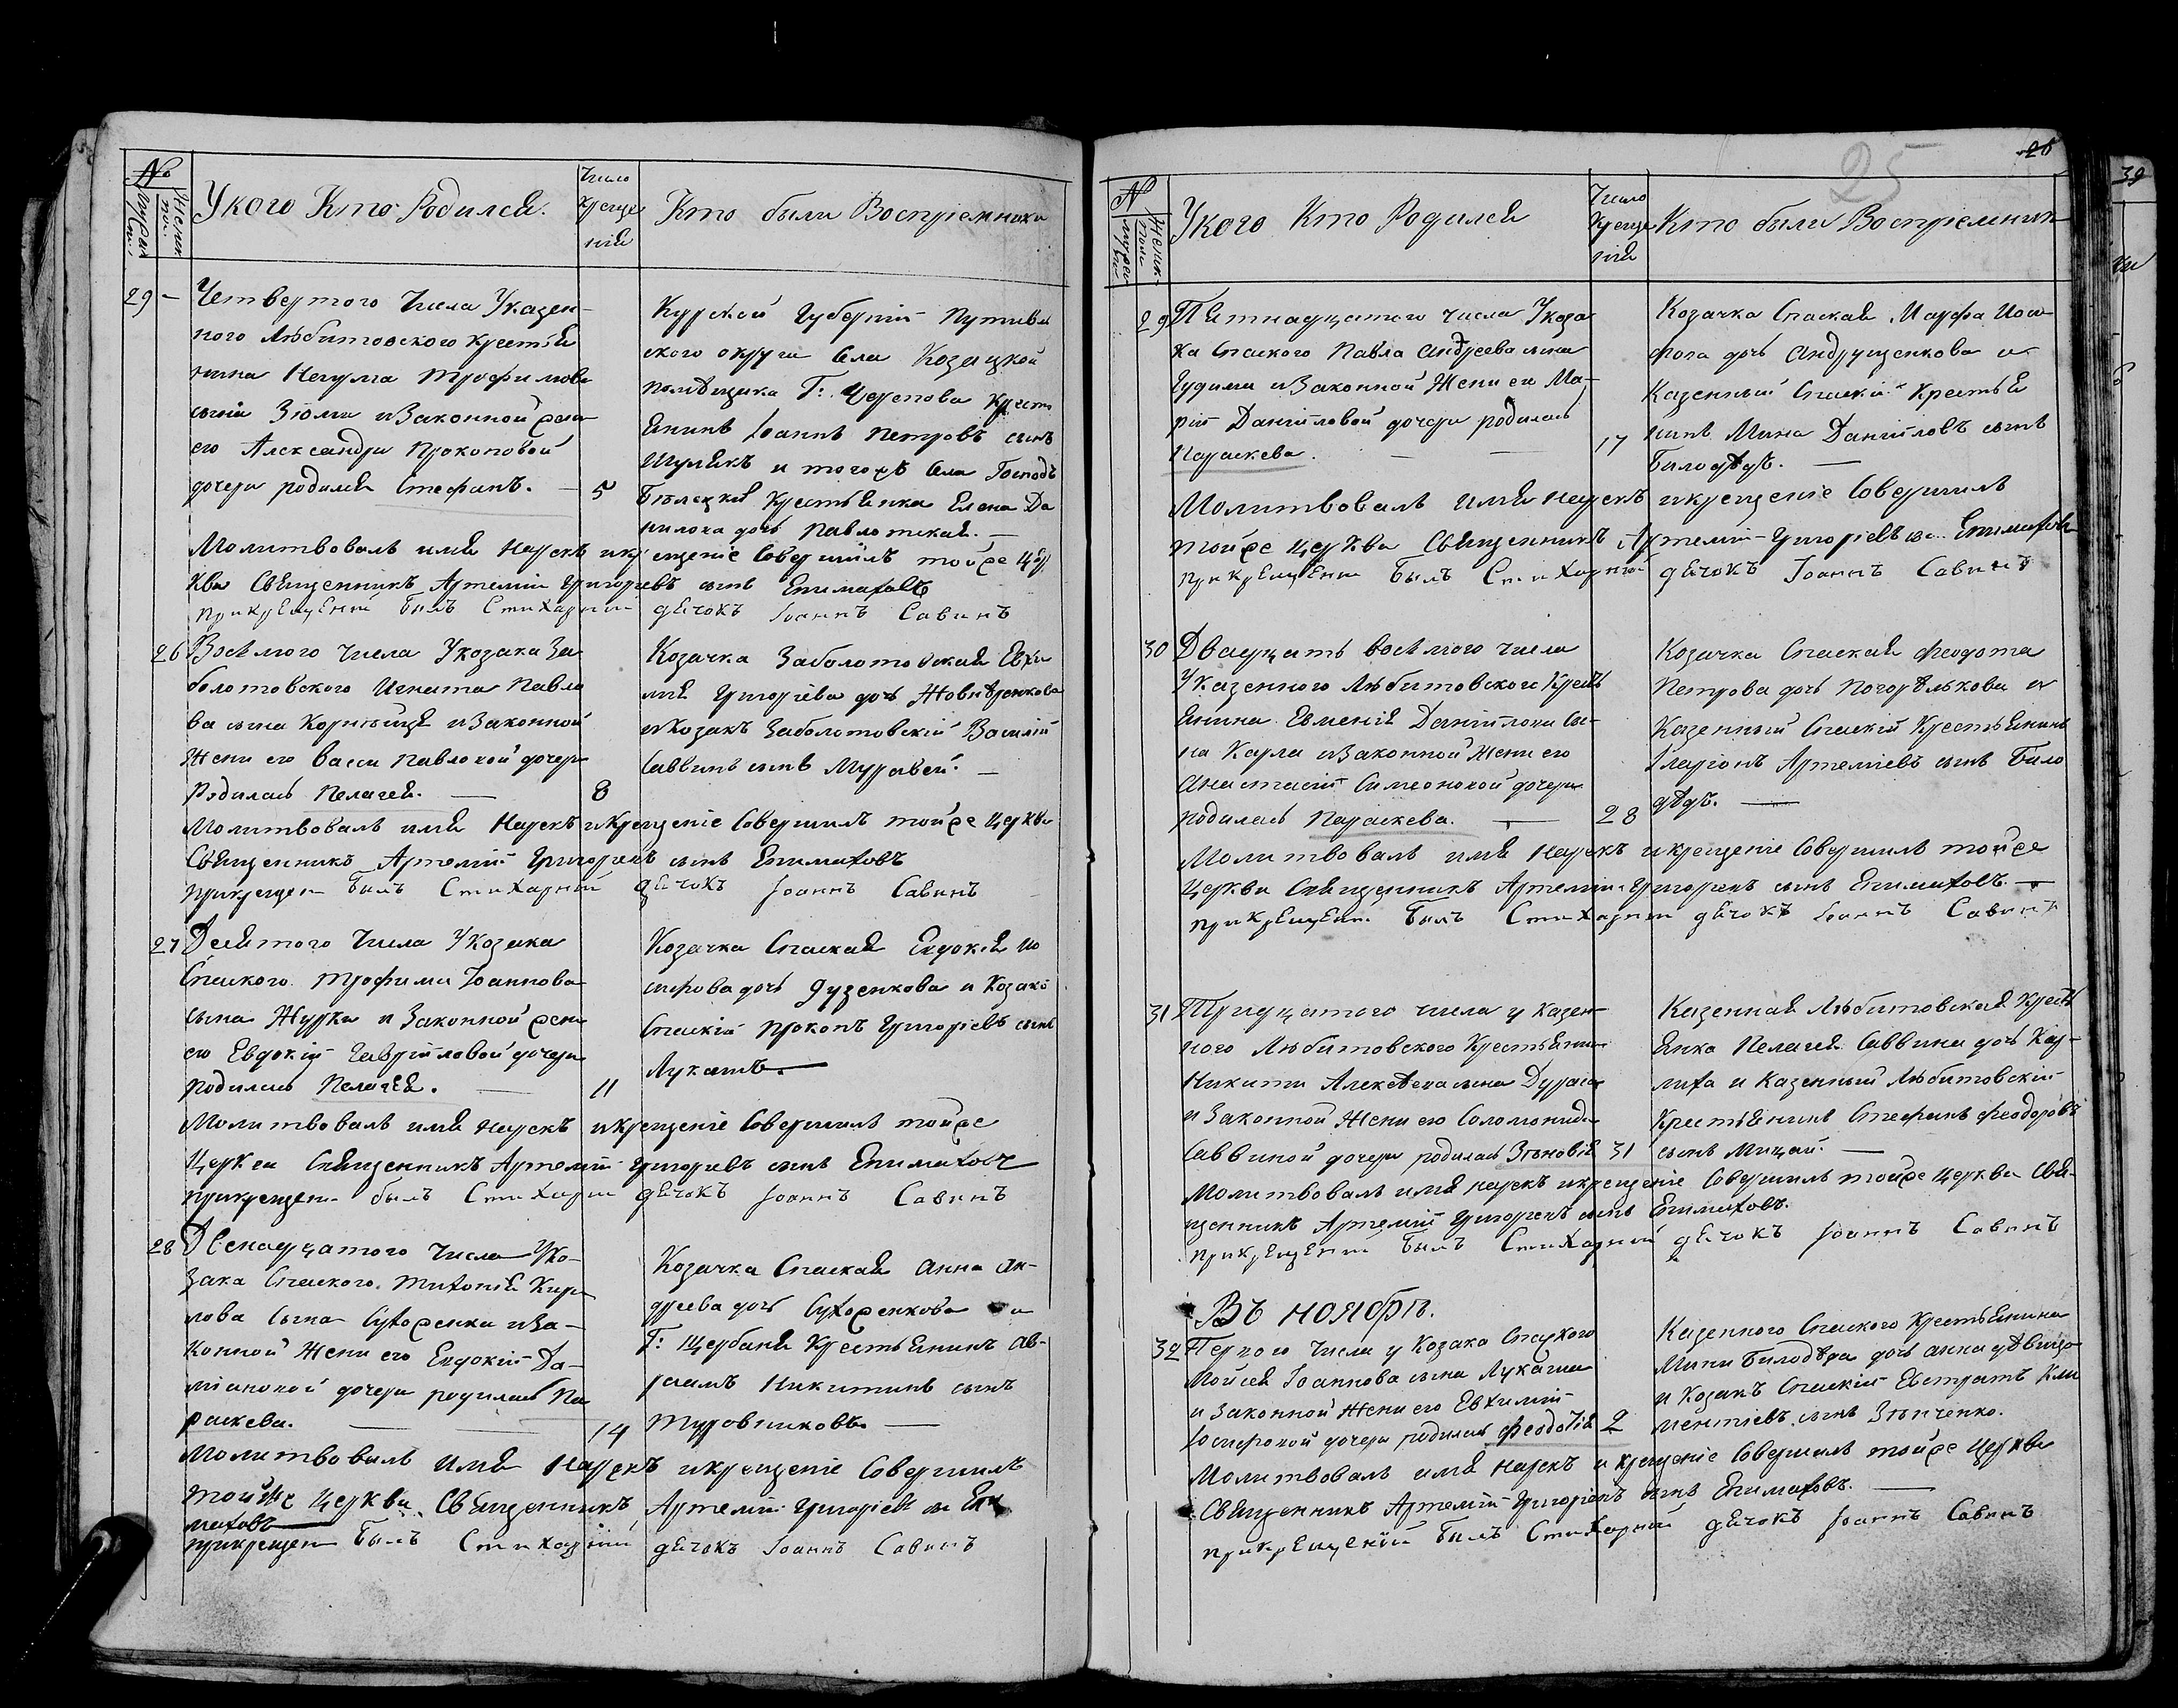 №
Мужеск
Женск
У кого Кто Родился.
Число
Креще
нія
Кто были Воспріемники
29 –
Четвертого Числа У казен-
ного Любитовского крестья
нина Наума Трофимова
сына Зюми и Законной жени
его Александри Прокоповой
дочери родился Стефанъ. — 5
Курской Губерніи Путивл
ского округи Села Козацкой
помѣщика Г: Черепова Крест
янинъ Іоаннъ Петровъ сынъ
Шулякъ и тогожъ Села Господъ
Крестьянка Елена Да
нилова дочь Павлотская. —
Молитвовалъ имя Нарекъ и крещеніе Совершилъ тойже Цер
кви Священникъ Артемій Григорьевъ сынъ Епимаховъ
при крещеніи былъ Стихарній дячокъ Іоаннъ Савинъ
26
Восмого Числа У козака За
болотовского Игната Павло
ва сына и Законной
Жени его Васси Павловой дочери
Родилась Пелагея. — 8
Козачка Заболотовская Евхи
мія Григорієва дочь
и Козакъ Заболотовскій Василій
Саввинъ сынъ Муравей. —
Молитвовалъ имя Нарекъ и Крещеніе Совершилъ тойже церкви
Священникъ Артемій Григоревъ сынъ Епимаховъ
при крещен былъ Стихарній дячокъ Іоаннъ Савинъ
27
Десятого Числа У козака
Спаского Трофима Іоаннова
сына Журки и Законной жени
его Евдокіи Гавріиловой дочери
родилась Пелагея. — 11
Козачка Спаская Евдокія Ио
сифова дочь Дузенкова и Козакъ
Спаскій Прокопъ Григоріевъ сынъ
Лукашъ. —
Молитвовалъ имя нарекъ и крещеніе Совершилъ тойже
Церкви Священникъ Артемій Григоревъ сынъ Епимаховъ
при крещени былъ Стихарни дячокъ Іоаннъ Савинъ
28
Двенадцатого Числа У Ко-
зака Спаского Тихонія Кири
лова Сына Сухоренки и За-
конной Жени его Евдокіи Да-
міановой дочери родилась Па
раскева. — 14
Козачка Спаская Анна Ан-
дреева дочь Сухоренкова и
Г: Щербаня Крестьянинъ Ав-
раамъ Никитинъ сынъ
Туровниковъ. —
Молитвовалъ имя Нарекъ и крещеніе Совершилъ
тойже Церкви Священникъ Артемій Григоріевъ сы Епи
маховъ
при крещен былъ Стихарній дячокъ Іоаннъ Савинъ
25
26
№
Мужеск
Женск
У кого Кто Родился
Число
Креще
нія
Кто были Воспріемник
29
Пятнадцатого числа У Коза
ка Спаского Павла Андреева сына
Гудими и Законной Жени ея Ма-
ріи Даніиловой дочери родилась
Параскева. — 17
Козачка Спаская Марфа Иоси
фова дочь Андрущенкова и
Казенный Спаскій Крестья
нинъ Мина Даніиловъ сынъ
Билодѣдъ. —
Молитвовалъ имя Нарекъ и крещеніе Совершилъ
тойже церкви Священникъ Артемій Григоріевъ сы. Епимаховъ
при крещени былъ Стихарній дячокъ Іоаннъ Савинъ
30
Дваццать восмого числа
У Казенного Любитовского Крест
янина Евменія Даніилова Сы-
на Карла и Законной Жени его
Анастасіи Симеоновой дочери
родилась Параскева. — 28
Козачка Спаская Феодота
Петрова дочь Погорѣлькова и
Казенный Спаскій Крестьянинъ
Іларіонъ Артеміевъ сынъ Било
дѣдъ. —
Молитвовалъ имя Нарекъ и крещеніе Совершилъ тойже
церкви Священникъ Артемій Григоревъ сынъ Епимаховъ. —
при крещени былъ Стихарни дячокъ Іоаннъ Савинъ
31
Тридцатого числа у Казен-
ного Любитовского Крестьянина
Никити Алексѣева сына
и Законной Жени его Соломониди
Саввиной дочери родилась Зѣновія 31
Казенная Любитовская Крест
янка Пелагея Саввина дочь Кар-
лиха и Казенный Любитовскій
Крестьянинъ Стефанъ Феодоровъ
сынъ Мицай. —
Молитвовалъ имя нарекъ и крещеніе Совершилъ тойже Церкви Свя
щенникъ Артемій Григоревъ сынъ Епимаховъ.
при крещеніи былъ Стихарній дячокъ Іоаннъ Савинъ
Въ Ноябрѣ.
32
Первого Числа у Козака Спаского
Мойсея Іоаннова сына Лукаша
и Законной Жени его Евхиміи
Іосифовой дочери родилась Феодосія 2
Казенного Спаского Крестьянина
Мини Билодѣда дочь Анна дѣвица
и Козакъ Спаскій Евстратъ Кли
ментіевъ сынъ Зѣнченко.
Молитвовалъ имя нарекъ и крещеніе Совершилъ тойже Церкви
Священникъ Артемій Григоріевъ сынъ Епимаховъ. —
при крещеніи былъ Стихарній дячокъ Іоаннъ Савинъ
39